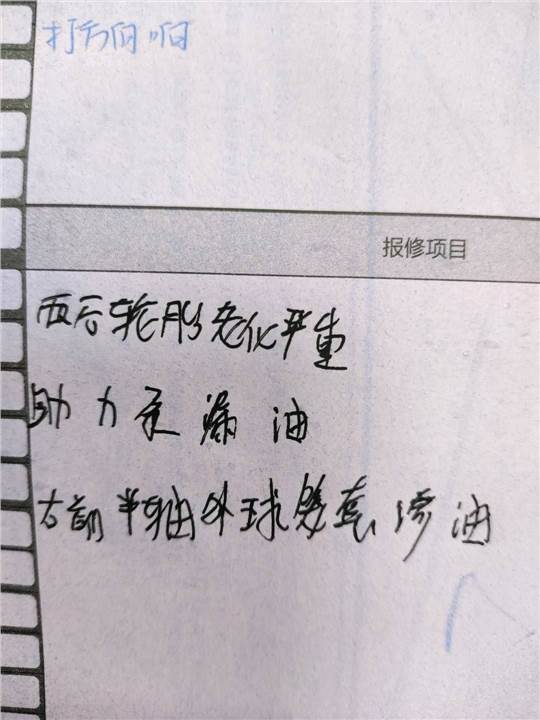 打方向响
报修项目
两后轮胎老化严重
助力泵漏油
右前半轴外球笼套渗油